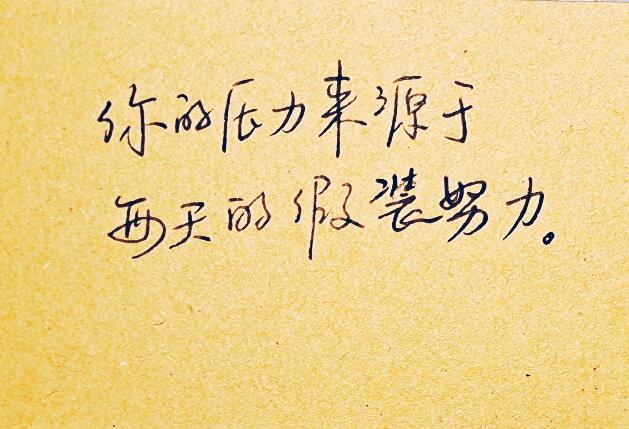 你的压力来源于
每天的假装努力。